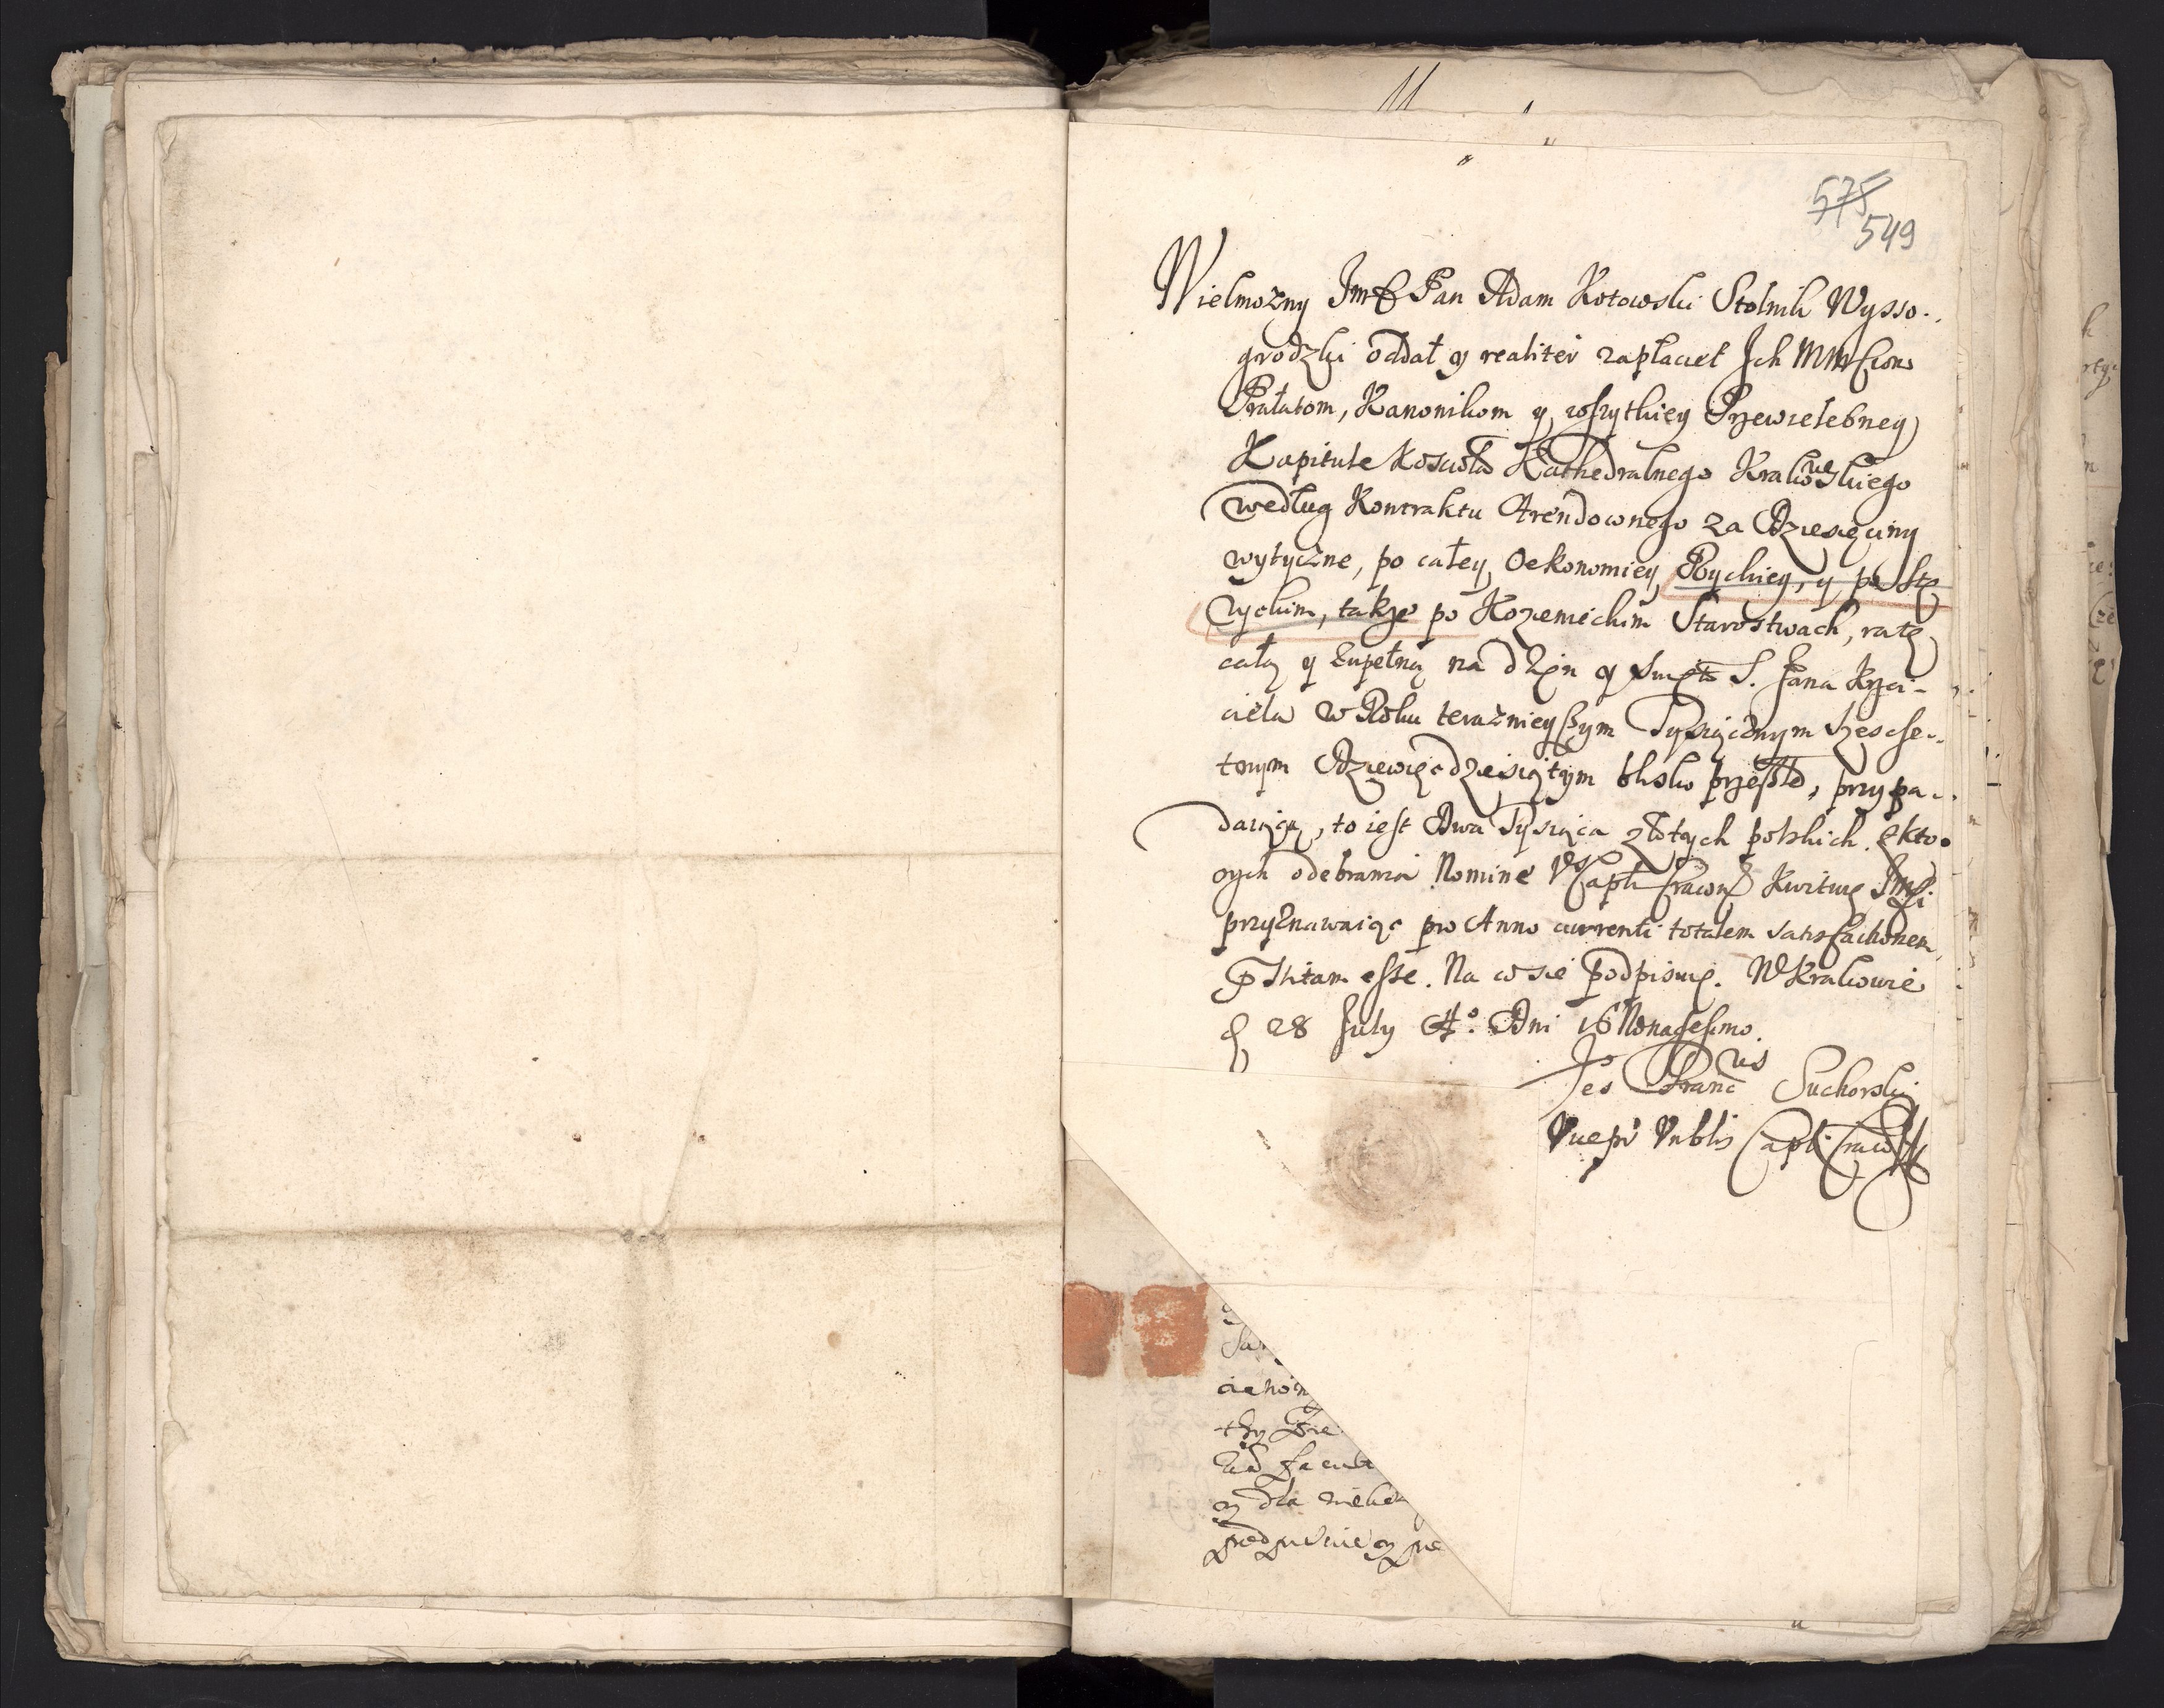 575
549
Wielmozny Jmć Pan Adam Kotowski Stolnik Wysso-
grodzki oddał y realiter zapłacieł Ich MMćiom
Prałatom, Kanonikom y wszytkiey Przewielebney
Kapitule Koscioła Kathedralnego Krakowskiego
według Kontraktu Arendownego za Dziesięciny
wytyczne, po całey Oekonomiey Ryckiey, y po Stę
zyckim, takze po Kozienickim Starostwach, ratę
całą y zupełną na dzien y swięto S. Jana Krzci-
ciela w Roku teraznieyszym Tysiącznym szescse-
tnym Dziewięcdziesiątym blisko przeszłe, przypa-
daiącą, to iest Dwa Tysiąca złotych polskich. z kto-
rych odebrania Nomine V Capli Cracov Kwituię Jmći
przyznawaiąc pro Anno currenti totalem satisfactionem
Pstitam esse. Na co sie podpisuię. W Krakowie
d 28 July Ao. Dni 16 Nonagesimo.
Jes Francus Suchorski
Vice Capli
cie
dla